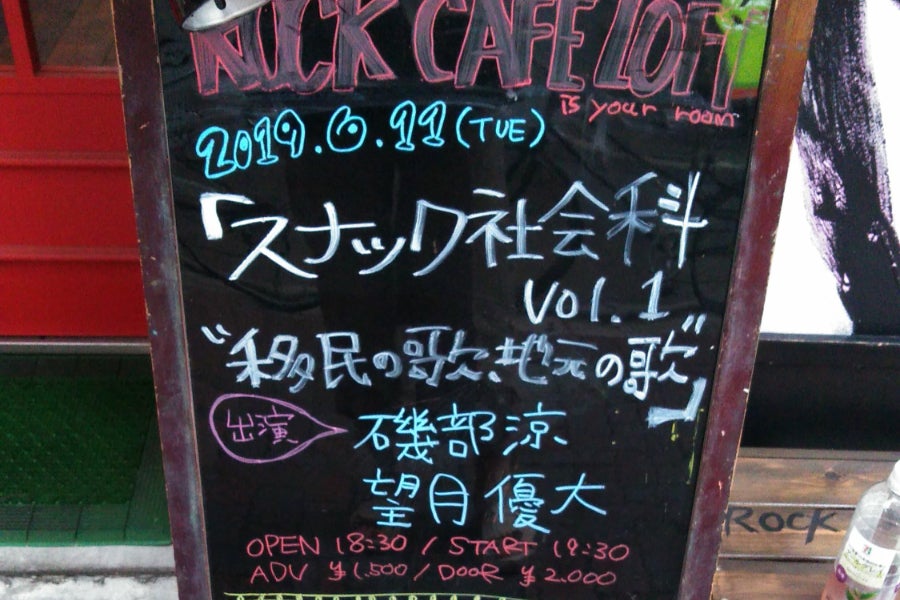 ROCK CAFE LOFT
is your room
2019.6.11(TUE)
「スナック社会科
vol.1
"移民の歌、地元の歌"」
出演
磯部涼
望月優大
OPEN 18:30 / START 19:30
ADV ¥1,500 / DOOR ¥2.000
ROCK